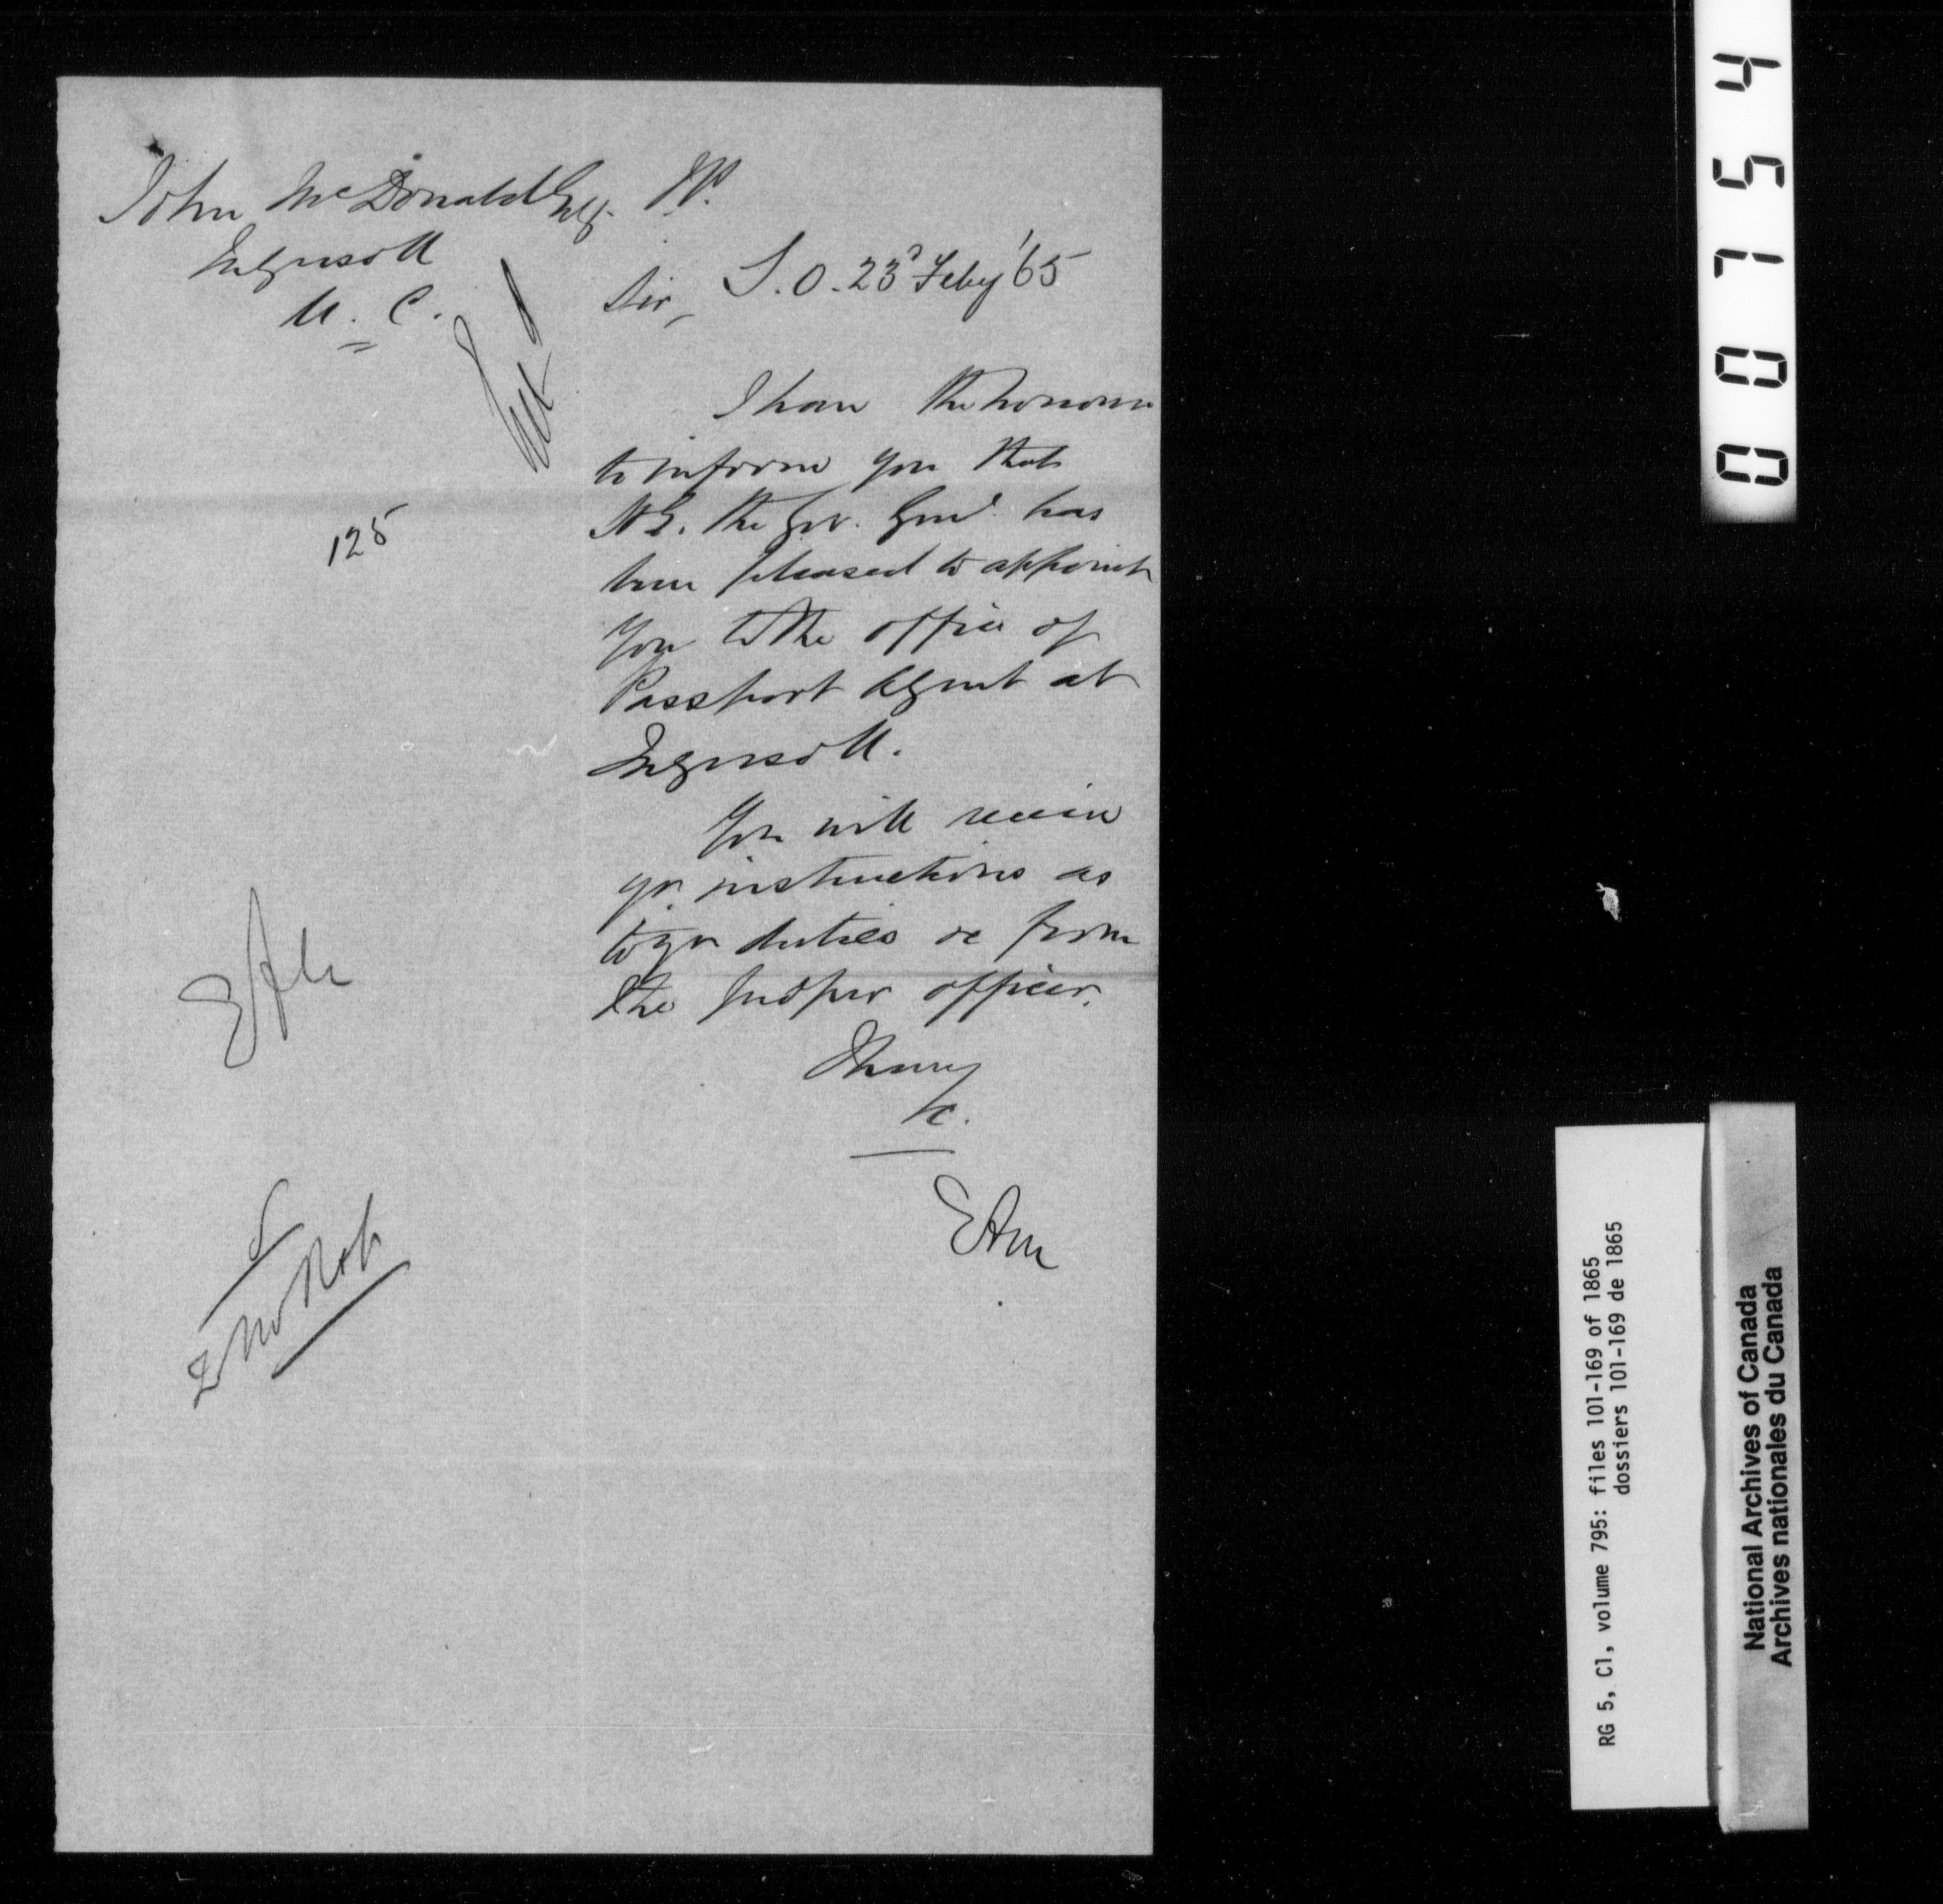 John McDonald Esq. J.P.
Ingersoll
U. C.
S. O. 23d Feby '65
Sir,
I have the honour
to inform you that
H E. the Gov. Genl. has
been pleased to appoint
you to the office of
Passport Agent at
Ingersoll.
You will receive
yr. instructions as
to yr duties &c from
the proper officer.
I have
&c.
EAM
125
0 0 7 5 4
RG 5, C1, volume 795: files 101-169 of 1865
dossiers 101-169 de 1865
National Archives of Canada
Archives nationales du Canada